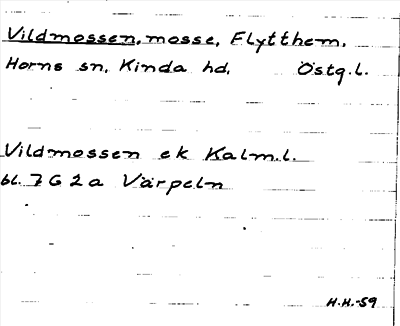 Vildmossen, mosse, Flytthem,
Horns sn, Kinda hd, Östg.l.
Vildmossen ek Kalm.l.
bl. 7 G 2 a Värpeln
H.H.-59